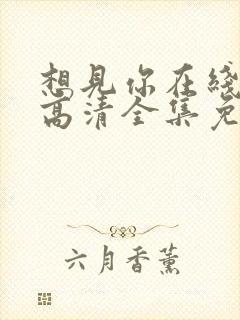 想見你在綫
高清全集免
六月香薰